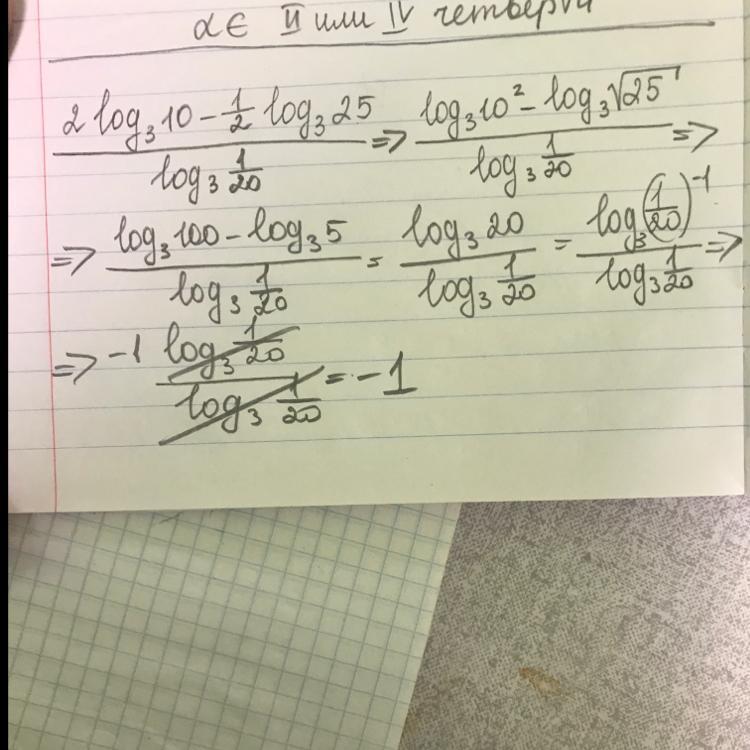 α∈ II или IV четверти
(2 log₃10 - 1/2 log₃25) / (log₃ 1/20) => (log₃10² - log₃√25) / (log₃ 1/20) =>
=> (log₃100 - log₃5) / (log₃ 1/20) = (log₃20) / (log₃ 1/20) = (log₃(1/20)⁻¹) / (log₃ 1/20) =>
=> -1 (log₃ 1/20) / (log₃ 1/20) = -1